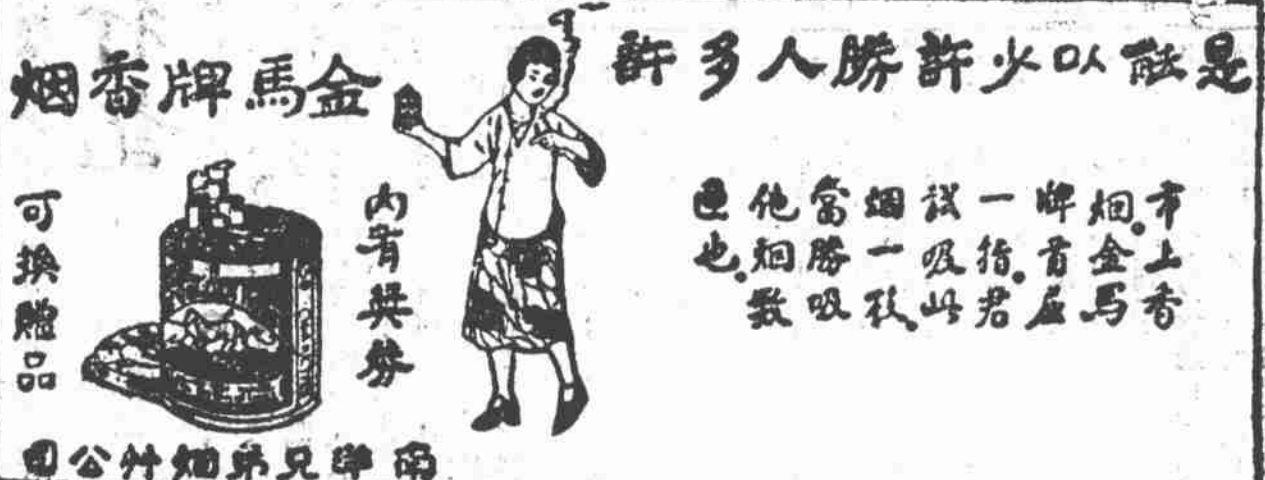 是能以少許勝人多許
市上香
烟。金馬
牌首屈
一指。君
試吸此
烟一枝、
當勝吸
他烟數
匣也。
金馬牌香烟
內有奬券
可換贈品
南洋兄弟烟艸公司